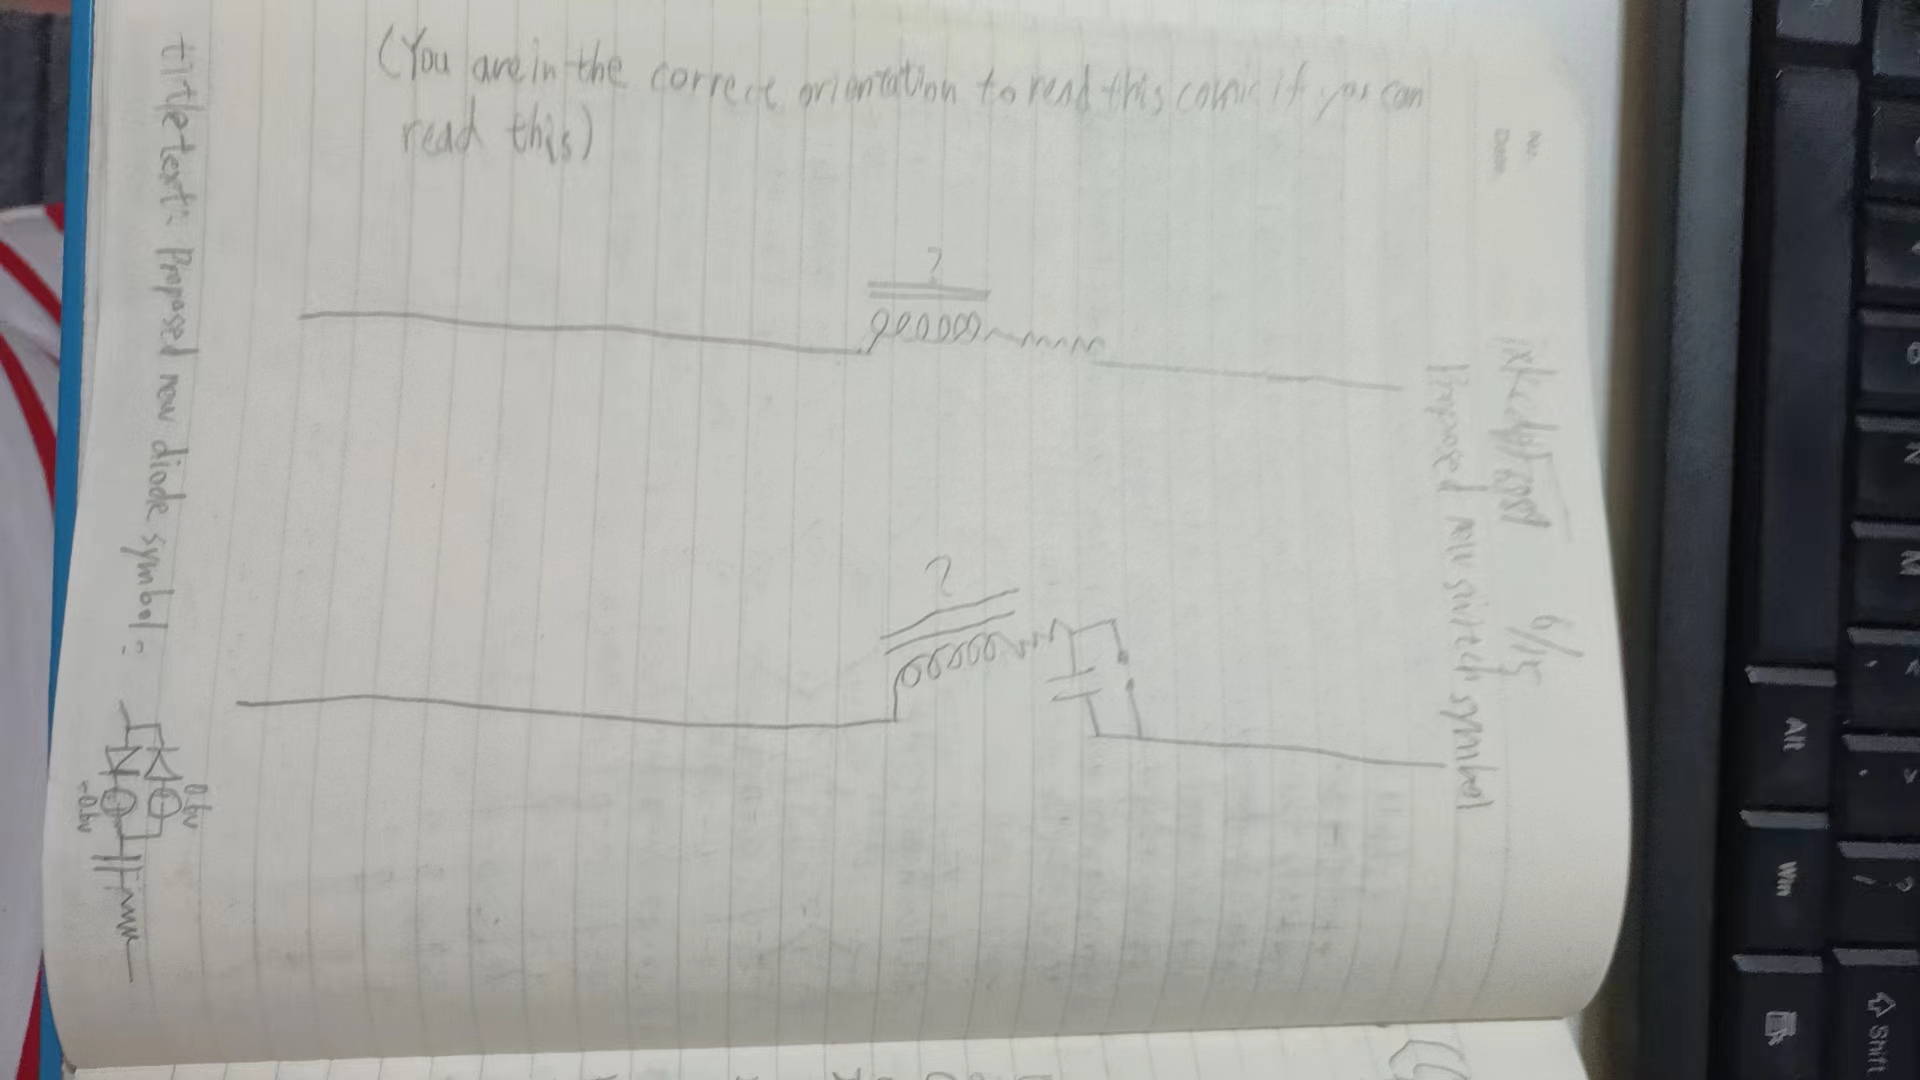 (You are in the correct orientation to read this comic if you can
read this)
?
?
No.
Date
6/15
Proposed new switch symbol
title text: Proposed new diode symbol:
0.6v
-0.6v
N
M
<
,
>
.
?
/
Alt
Win
Shift